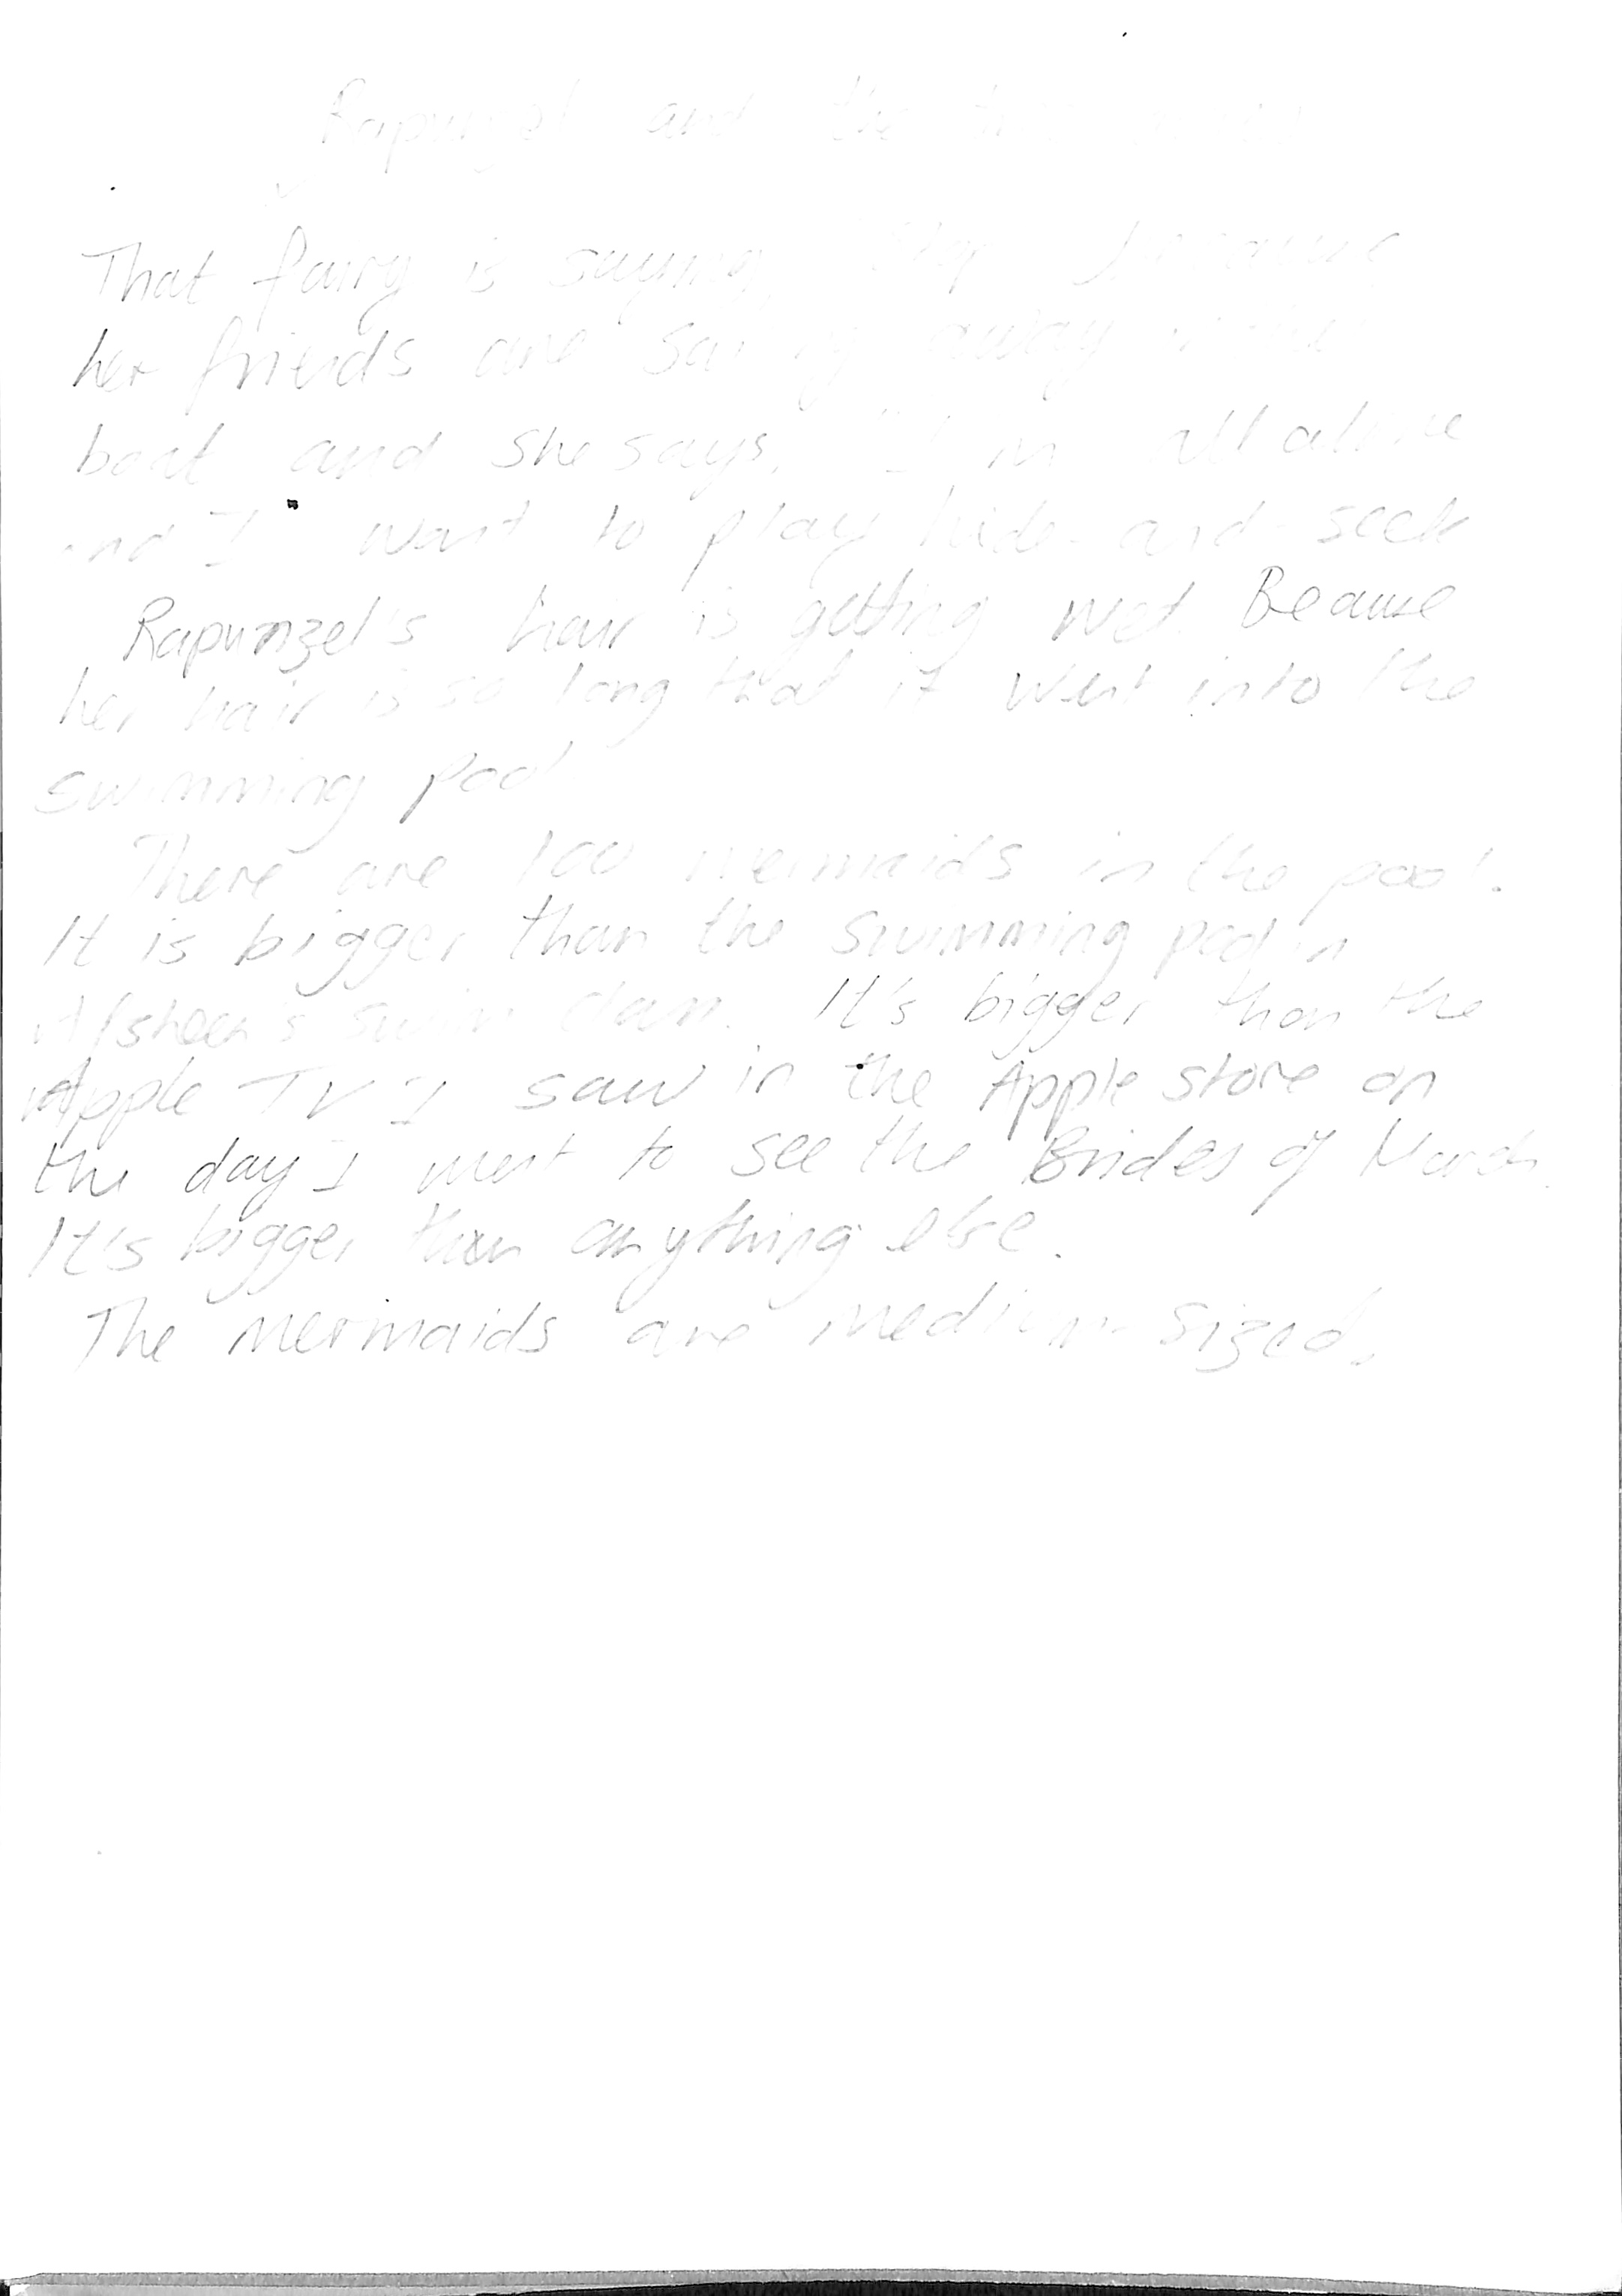 Rapunzel and the
That fairy is saying, "Stop" because
her friends are sailing away in the
boat and she says, "I'm all alone
and I want to play hide-and-seek
Rapunzel's hair is getting wet. Beause
her hair is so long that it went into the
swimming pool
There are 100 mermaids in the pool.
It is bigger than the swimming pool in
Afsheen's swim class. It's bigger than the
Apple TV I saw in the Apple store on
the day I went to see the Brides of March.
It's bigger than anything else.
The mermaids are medium-sized.